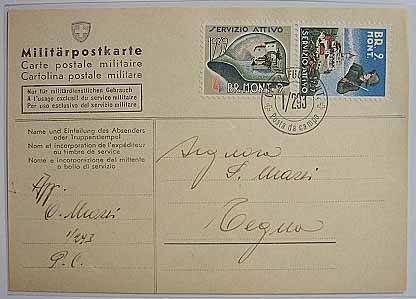 Militärpostkarte
Carte postale militaire
Cartolina postale militare
Nur für militärdienstlichen Gebrauch
A l'usage exclusif du service militaire
Per uso esclusivo del servizio militare
Name und Einteilung des Absenders
oder Truppenstempel
Nom et incorporation de l'expéditeur
ou timbre de service
Nome e incorporazione del mittente
o bollo di servizio
App.
O. Mussi
1/293
P. C.
SERVIZIO ATTIVO
1939
BR. MONT. 9
BR. 9
MONT
SERVIZIO ATTIVO
I/293
Posta da campo
Signora
S. Mussi
Tegna